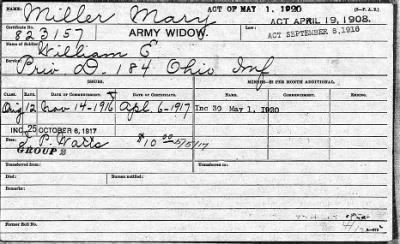 Miller Mary ACT OF MAY 1, 1920 (3-P.A.D.)
ACT APRIL 19, 1908.
Certificate No. 823157 ARMY WIDOW. ACT SEPTEMBER 8, 1916
Name of Soldier: William E
Service: Priv D. 184 Ohio Inf
ISSUES. MINORS—$2 PER MONTH ADDITIONAL.
CLASS. RATE. COMMENCEMENT. DATE OF CERTIFICATE. NAME. COMMENCEMENT. ENDING.
Orig 12 Nov 14-1916 Apl. 6-1917 Inc 30 May 1, 1920
INC. 25 OCTOBER 6, 1917
P. Watts $10.00 5/5/17
GROUP 2
Transferred from: Transferred to:
Died: Bureau notified:
Remarks:
Former Roll No.